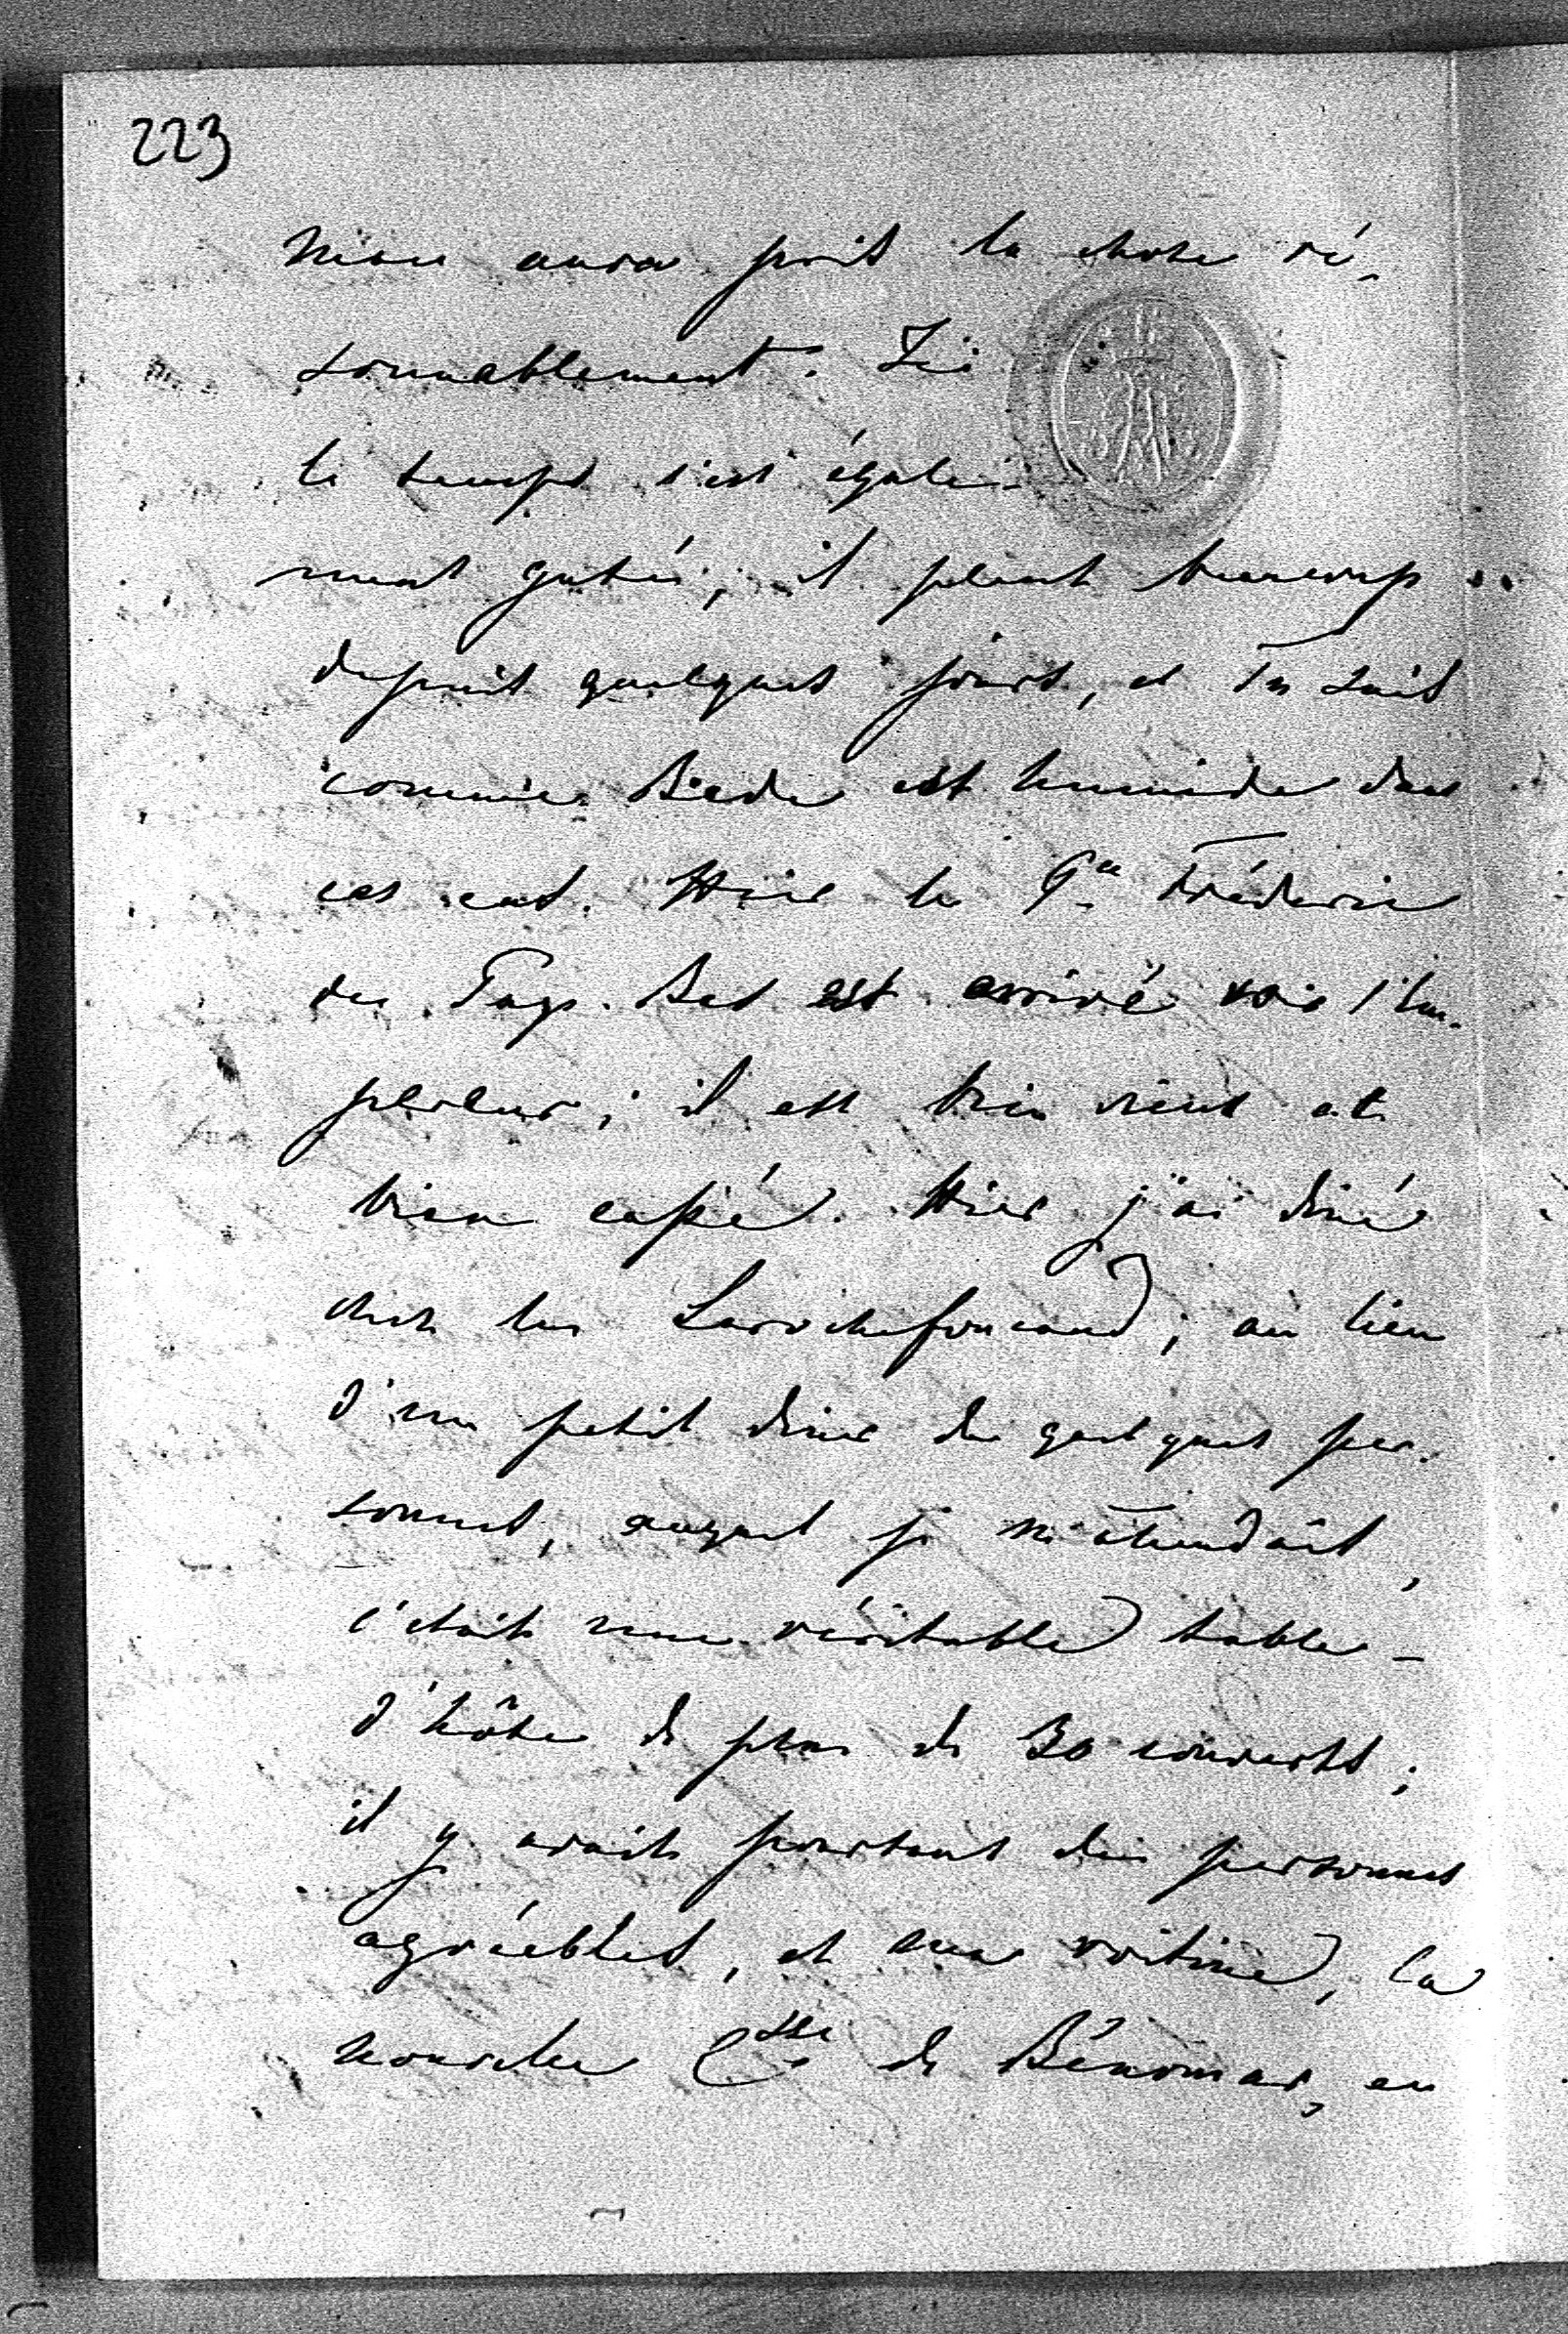 223
aura pris la chose ré-
sonnablement. Ici
le temps s'est égale-
ment gaté; il pleut beaucoup
depuis quelques jours, et Tu sais
comme Bade est humide dans
ces cas. Hier le Pce Fréderic
des Pays-Bas est arrivé voir l'Em-
pereur; il est bien vieux et
bien cassé. Hier j'ai diné
chez les Larochefoucaud; au lieu
d'un petit diner de quelques per-
sonnes, auquel je m'attendais,
c'était une véritable table-
d'hôte de plus de 30 couverts;
il y avait pourtant des personnes
agréables, et ma voisine, la
nouvelle Csse de Bénomar, en